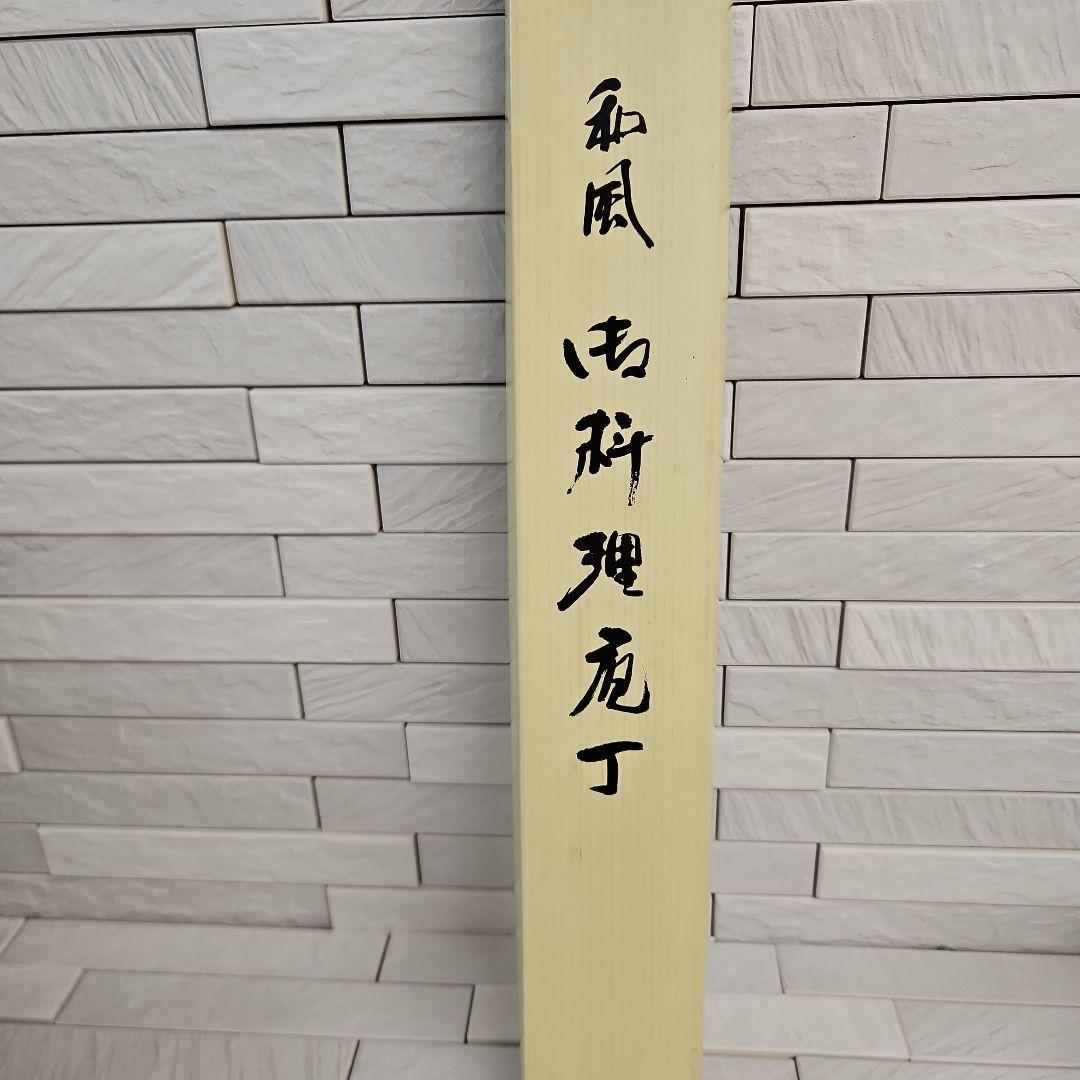 和風 御料理庖丁